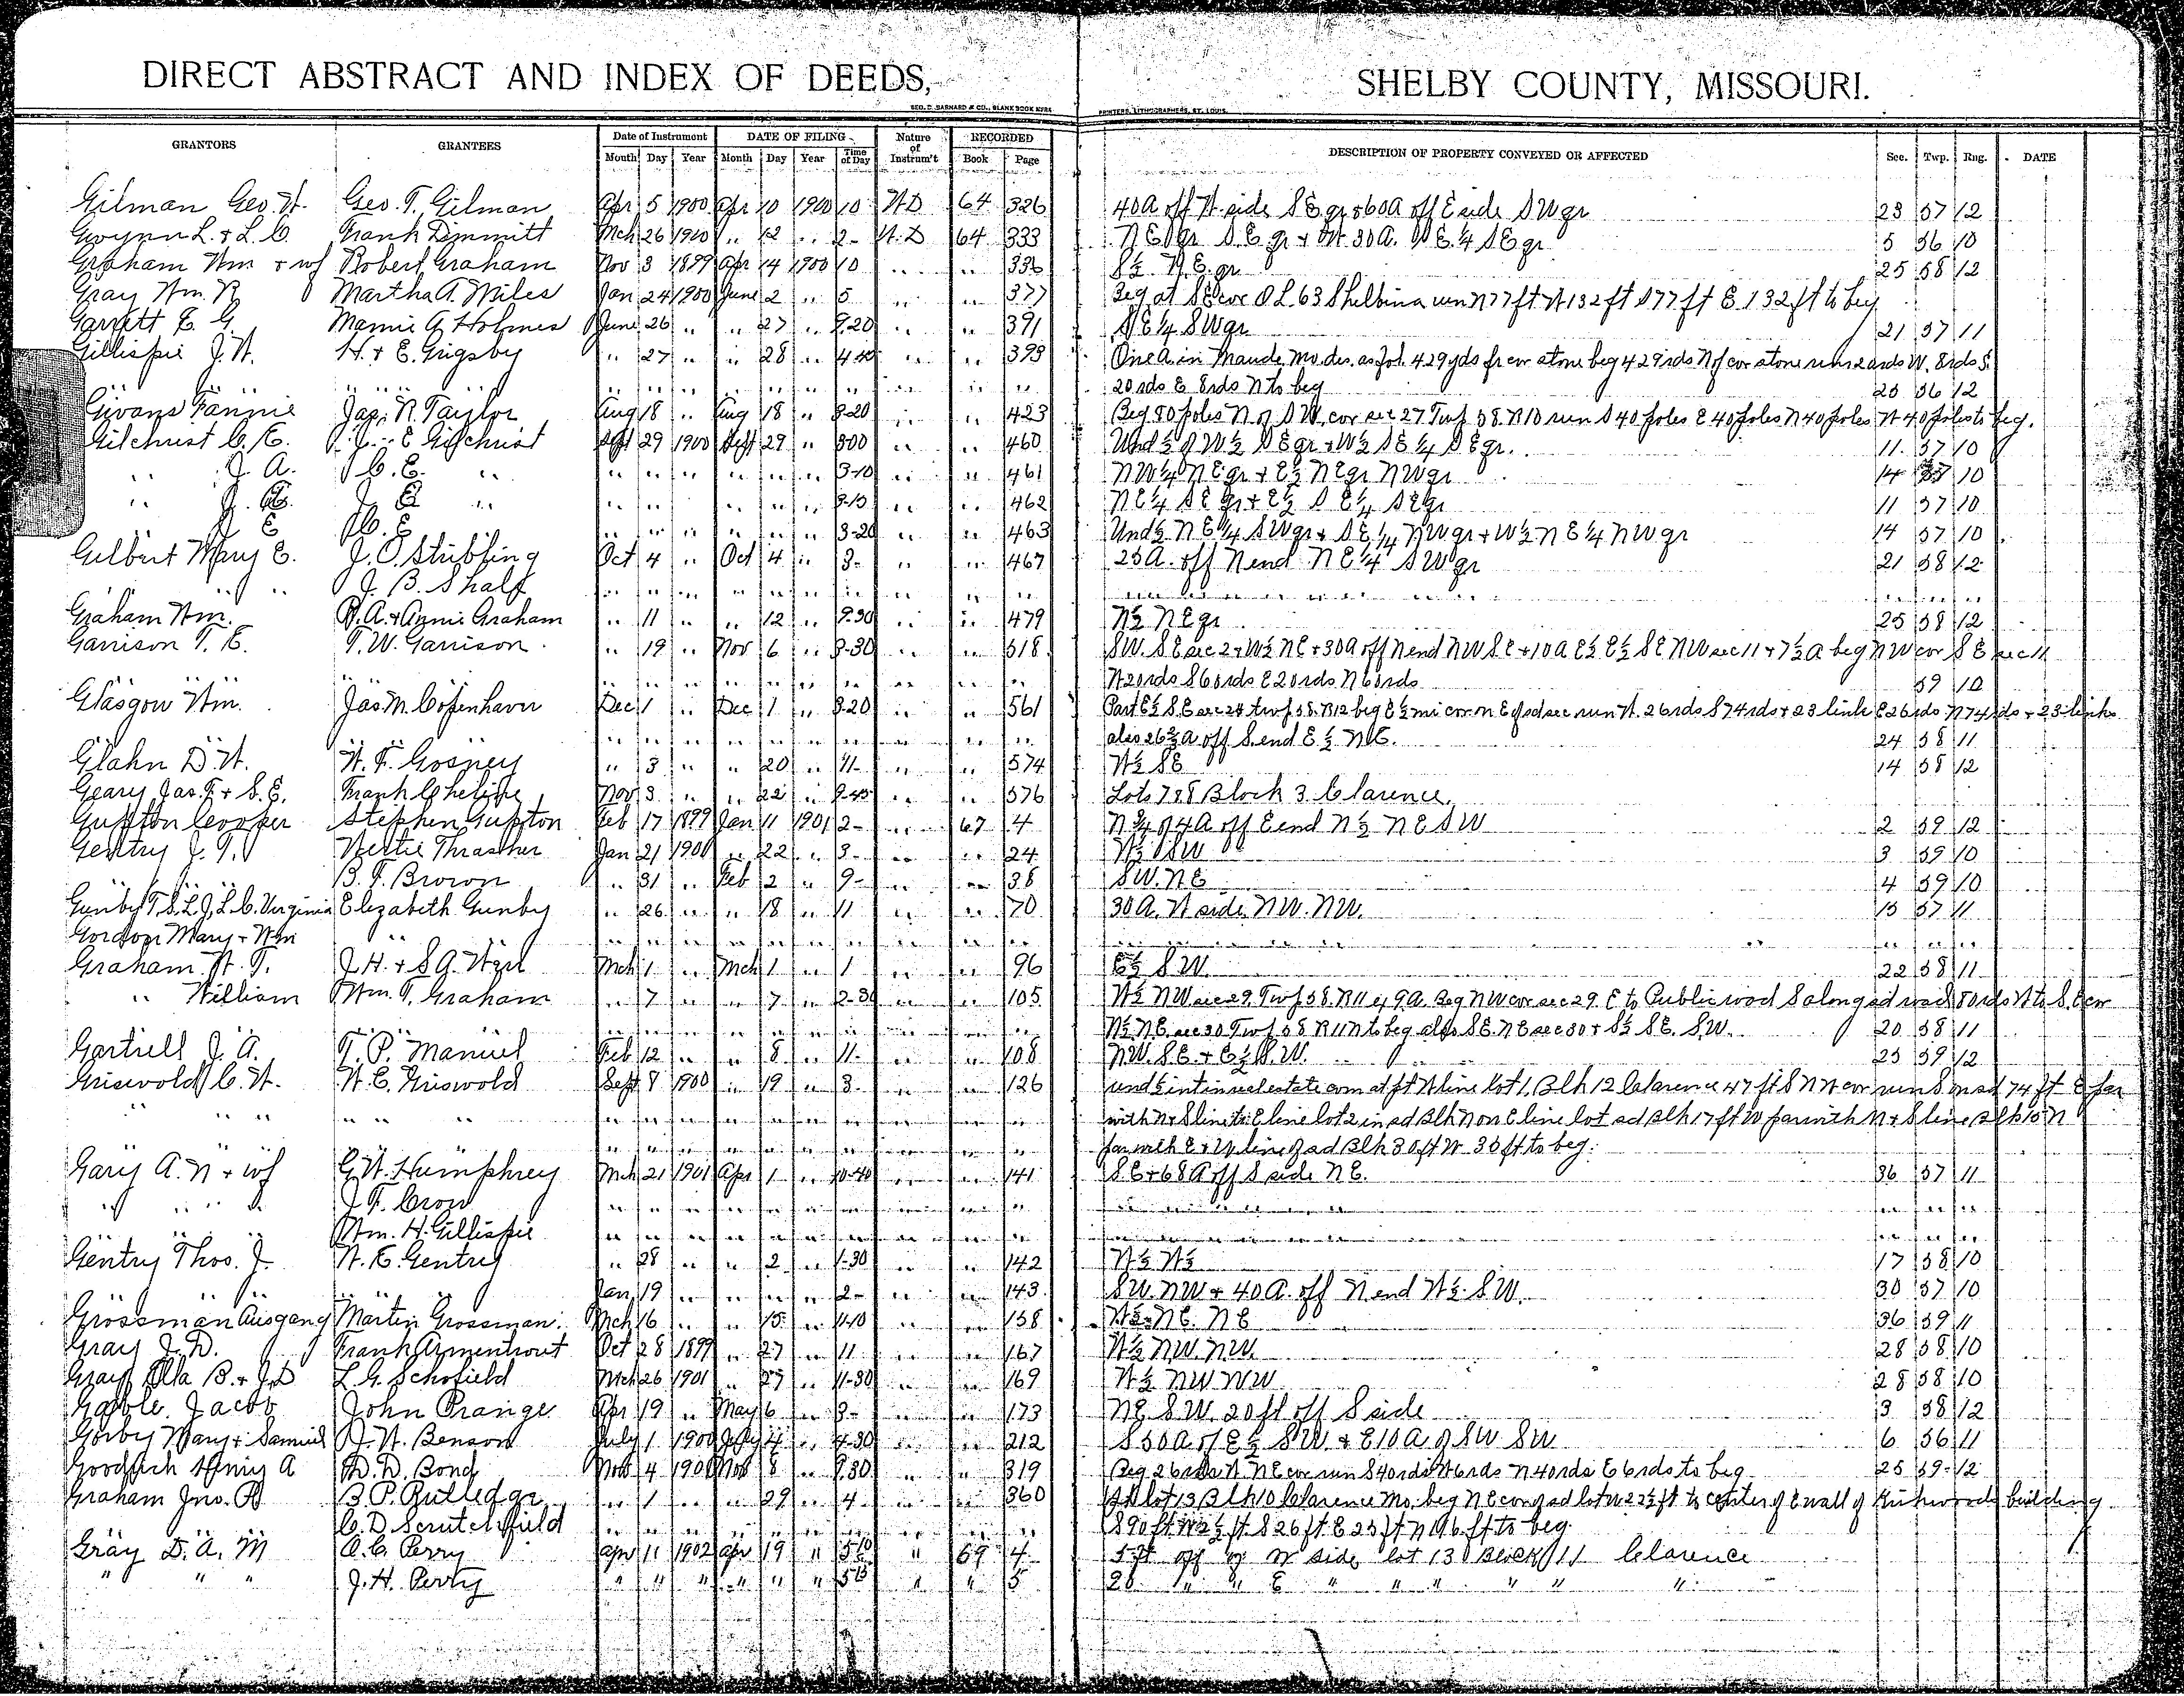 DIRECT ABSTRACT AND INDEX OF DEEDS, SHELBY COUNTY, MISSOURI.
GEO. D. BARNARD & CO., BLANK BOOK MFRS PRINTERS, LITHOGRAPHERS, ST. LOUIS.
GRANTORS GRANTEES Date of Instrument DATE OF FILING Nature of Instrum't RECORDED DESCRIPTION OF PROPERTY CONVEYED OR AFFECTED Sec. Twp. Rng. DATE
Month Day Year Month Day Year Time of Day Book Page
Gilman Geo. W. Geo. T. Gilman Apr 5 1900 Apr 10 1900 10 WD 64 326 40A off W side SE qr & 60A off E side SW qr 23 57 12
Gwynn L. & L. C. Frank Dimmitt Mch 26 1900 " 12 " 2- W.D 64 333 SE qr & W. 30A. SE 1/4 SE qr 5 56 10
Graham Wm & wf Robert Graham Nov 3 1899 Apr 14 1900 10 " " 336 S½ N.E. qr 25 58 12
Gray Wm. R Martha A. Miles Jan 24 1900 June 2 " 5 " " 377 Beg at SE cor OL 63 Shelbina run N 77 ft W 132 ft S 77 ft E 132 ft to beg
Garrett E. G. Mamie A. Holmes June 26 " " 27 " 9.20 " " 391 SE¼ SW qr 21 57 11
Gillispie J. W. H. & E. Grigsby " 27 " " 28 " 4.40 " " 393 One A. in Maude, Mo. des. as fol. 429 yds fr cor stone beg 429 rds N of cor stone run 20 rds W. 8 rds S.
" " " " " " " " " " " " 20 rds E 8 rds N to beg 25 56 12
Givans Fannie Jas. N. Taylor Aug 18 " Aug 18 " 8-20 " " 423 Beg 80 poles N of SW. cor sec 27 Twp 58. R10 run S 40 poles E 40 poles N 40 poles W 40 poles to beg.
Gilchrist C. E. J. E Gilchrist Sept 29 1900 Sept 29 " 300 " " 460 Und ½ of W½ SE qr & W½ SE ¼ SE qr. 11 57 10
" J. A. C. E. " " " " " " " 3-10 " " 461 NW¼ NE qr & E½ NE qr NW qr 14 57 10
" J. E. J. E " " " " " " " 3-15 " " 462 NE¼ SE qr & E½ SE¼ SE qr 11 57 10
E C. E " " " " " " 3-20 " " 463 Und ½ NE¼ SW qr & SE¼ NW qr & W½ NE¼ NW qr 14 57 10
Gilbert Mary E. J. O. Stribling Oct 4 " Oct 4 " 3- " " 467 25A. off N end NE¼ SW qr 21 58 12
" " " J. B. Shaff " " " " " " " " " " " " " " "
Graham Wm. R. A. & Annie Graham " 11 " " 12 " 9.30 " " 479 N½ NE qr 25 58 12
Garrison T. E. T. W. Garrison " 19 " Nov 6 " 8-30 " " 518 SW. SE sec 2 & W½ NE & 30A off N end NW SE & 10A E½ E½ SE NW sec 11 & 7½ A beg NW cor SE sec 11
" " " " " " " " " " " W 20 rds S 60 rds E 20 rds N 60 rds 59 10
Glasgow Wm. Jas. M. Copenhaver Dec 1 " Dec 1 " 8-20 " " 561 Part E½ S.E sec 24 twp 58. R12 beg E ½ mi cor on E of sd sec run W. 26 rds S 74 rds & 23 links E 26 rds N 74 rds & 23 links
" " " " " " " " " " also 26⅔ A off S. end E½ NE. 24 58 11
Glahn D. W. W. F. Gosney " 3 " " 20 " 11- " " 574 W½ SE 14 58 12
Geary Jas. F. & S. E. Frank Cheline Nov 3 " " 22 " 9-45 " " 576 Lots 7 & 8 Block 3 Clarence
Gupton Cooper Stephen Gupton Feb 17 1899 Jan 11 1901 2- " 67 4 A off E end N½ NE SW 2 59 12
Gentry J. T. Nertie Thrasher Jan 21 1901 " 22 " 3- " " 24 W½ SW 3 59 10
" " B. F. Brown " 31 " Feb 2 " 9- " " 38 SW. NE 4 59 10
Gunby T. S. L. J. L. C. Virginia Elizabeth Gunby " 26 " " 18 " 11 " " 70 30A. W side NW. NW. 15 57 11
Gordon Mary & Wm " " " " " " " " " " " " " "
Graham W. T. J. H. & S. A. Weil Mch 1 " Mch 1 " 1 " " 96 E½ SW 22 58 11
" William Wm. T. Graham " 7 " " 7 " 2-30 " " 105 W½ NW sec 29 Twp 58. R11 ex 9A. Beg NW cor sec 29. E to Public road S along sd road 80 rds W to S.E cor
" " " " " " " " " " N½ NE sec 30 Twp 58 R11 N to beg also SE. NE sec 30 & S½ SE. SW. 20 58 11
Gartrell J. A. T. P. Manuel Feb 12 " " 8 " 11- " " 108 NW. SE. & E½ SW. 23 59 12
Griswold C. W. W. E. Griswold Sept 8 1900 " 19 " 3- " " 126 und ½ int in real estate com at pt W line lot 1, Blk 12 Clarence 47 ft S NW cor run S on sd 74 ft E par
" " " " " " " " " " " " " " with N & S line to E line lot 2 in sd Blk N on E line lot sd Blk 17 ft W par with N & S line Blk 15 N
" " " " " " " " " " par with E & W line of sd Blk 30 ft W 30 ft to beg.
Gary A. N & wf G. W. Humphrey Mch 21 1901 Apr 1 " 10-40 " " 141 SE & 68A off S side NE. 36 57 11
" " " " J. F. Crow " " " " " " " " " " " " " "
" Wm. H. Gillispie " " " " " " " " " " " " " "
Gentry Thos. J. W. E. Gentry " 28 " " 2 " 1-30 " " 142 W½ W½ 17 58 10
Jan 19 " " " " 2- " " 143 SW. NW & 40A. off N end W½. SW. 30 57 10
Grossman Ausgang Martin Grossman Mch 16 " " 15 " 11-10 " " 158 W½ NE. NE 36 59 11
Gray J. D. Frank Armentrout Oct 28 1899 " 27 " 11 " " 167 W½ NW. NW 28 58 10
Gray Ella B. & J. D L. G. Schofield Mch 26 1901 " 27 " 11-30 " " 169 W½ NW NW 28 58 10
Gable Jacob John Prange Apr 19 " May 6 " 3- " " 173 NE SW. 20 ft off S side 3 58 12
Gorby Mary & Samuel J. W. Benson July 1 1900 July 4 " 4-30 " " 212 S 50A of E½ SW & E 10A of SW SW 6 56 11
Goodrich Henry A D. D. Bond Nov 4 1901 Nov 8 " 9.30 " " 319 Beg 26 rds W NE cor run S 40 rds W 6 rds N 40 rds E 6 rds to beg 25 59 12
Graham Jno. R B. P. Rutledge " 1 " " 29 " 4- " " 360 Pt lot 13 Blk 10 Clarence Mo. beg NE cor of sd lot W 22½ ft to center of E wall of Kirkwoods building
C. D. Scrutchfield " " " " " " " " " " S 90 ft W 2½ ft S 26 ft E 25 ft N 116 ft to beg.
Gray D. A. M A. C. Perry Apr 11 1902 Apr 19 " 5 10 " 69 4 5 ft off of W side lot 13 Block 11 Clarence
" " " J. H. Perry " " " " " " 5 15 " " 5 20 " " E " " " " " "